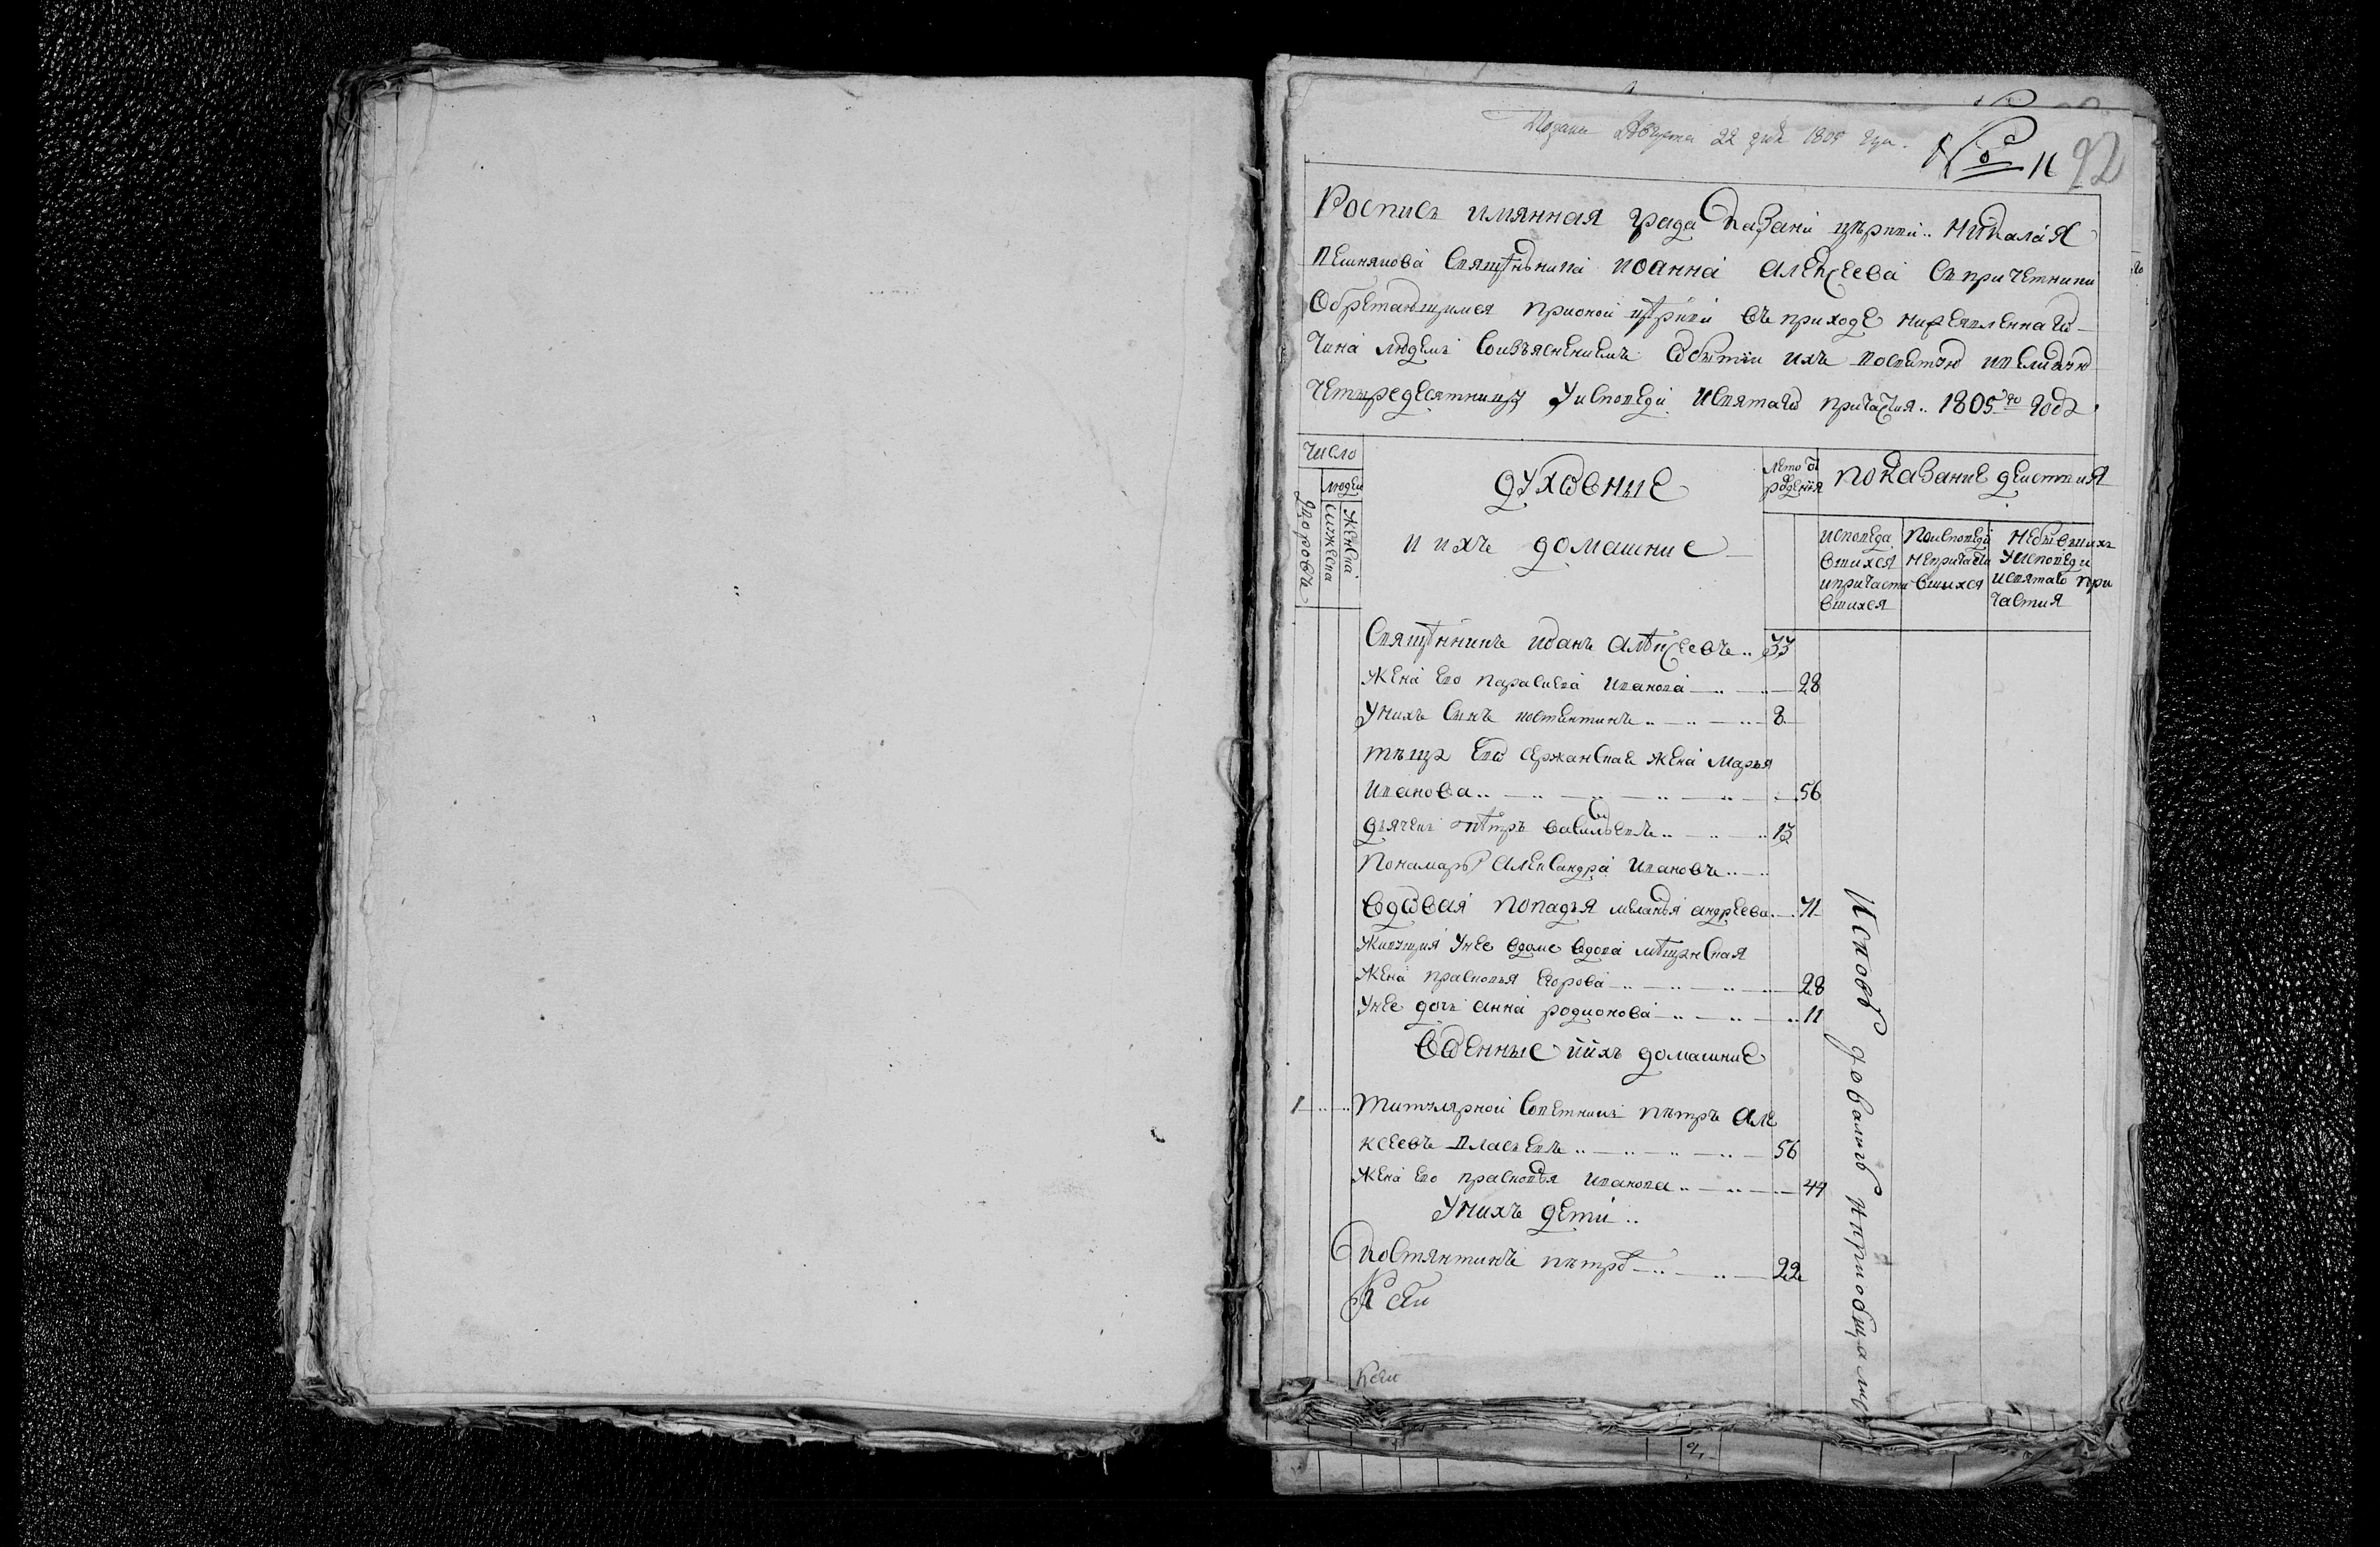 Подана Августа 22 дня 1805 года.
№ 11 92
Роспись имянная града Казани церкви Николая
Пешнянова священника Иоанна Алексеева съ причетники
Обретающимся при оной церкви въ приходе нижеявленнаго
Чина людемъ со изъяснениемъ о бытии ихъ во святую и великую
Четыредесятницу у исповеди и святаго причастия 1805 го года
Число
Дворовъ
людей
мужеска
женска
духовные
и ихъ домашние
лета от рождения
показание действия
исповеда
вшихся
и причасти
вшихся
По исповеди
не причасти
вшихся
Не бывшихъ
у исповеди
и святаго при
частия
Священникъ Иоанъ Алексеевъ 33
Жена ево Парасковa Иванова 28
У нихъ сынъ Костентинъ 8
теща ево сержанская жена Марья
Иванова 56
дьячекъ Петръ Васильевъ 13
Пономарь Александра Ивановъ
Вдовая попадья Меланья Андреева 71
Живущия у нее в доме вдова мещанская
Жена Прасковья Егорова 28
У нее дочь Анна Родионова 11
Военные и ихъ домашние
1 Титулярной советникъ Петръ Але
ксеевъ Власьевъ 56
Жена ево Прасковья Иванова 44
У нихъ дети
Костянтинъ Петров 22
Ксеи
Ксеи
Исповѣдовалъ и приобщалъ